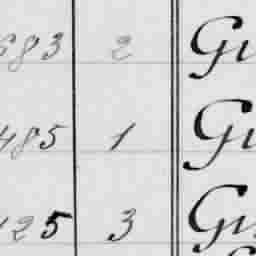 683 2 Gu
485 1 Gu
125 3 Gu